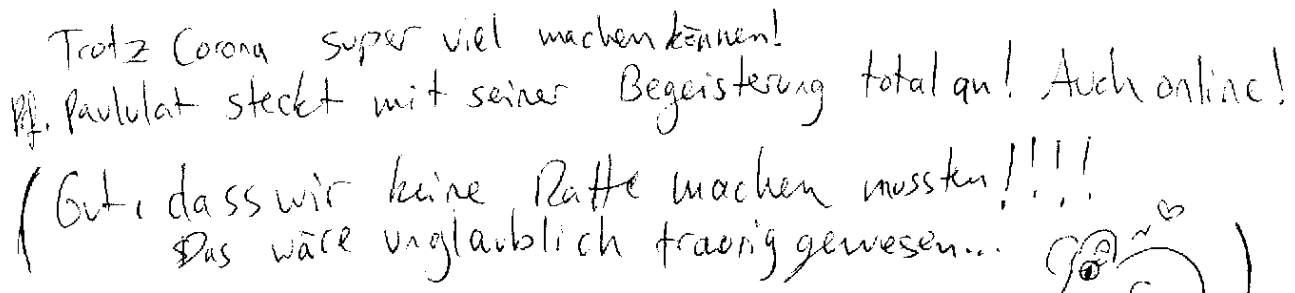 Trotz Corona super viel machen können!
Pf. Paululat steckt mit seiner Begeisterung total an! Auch online!
(Gut, dass wir keine Ratte machen mussten!!!!
Das wäre unglaublich traurig gewesen... )